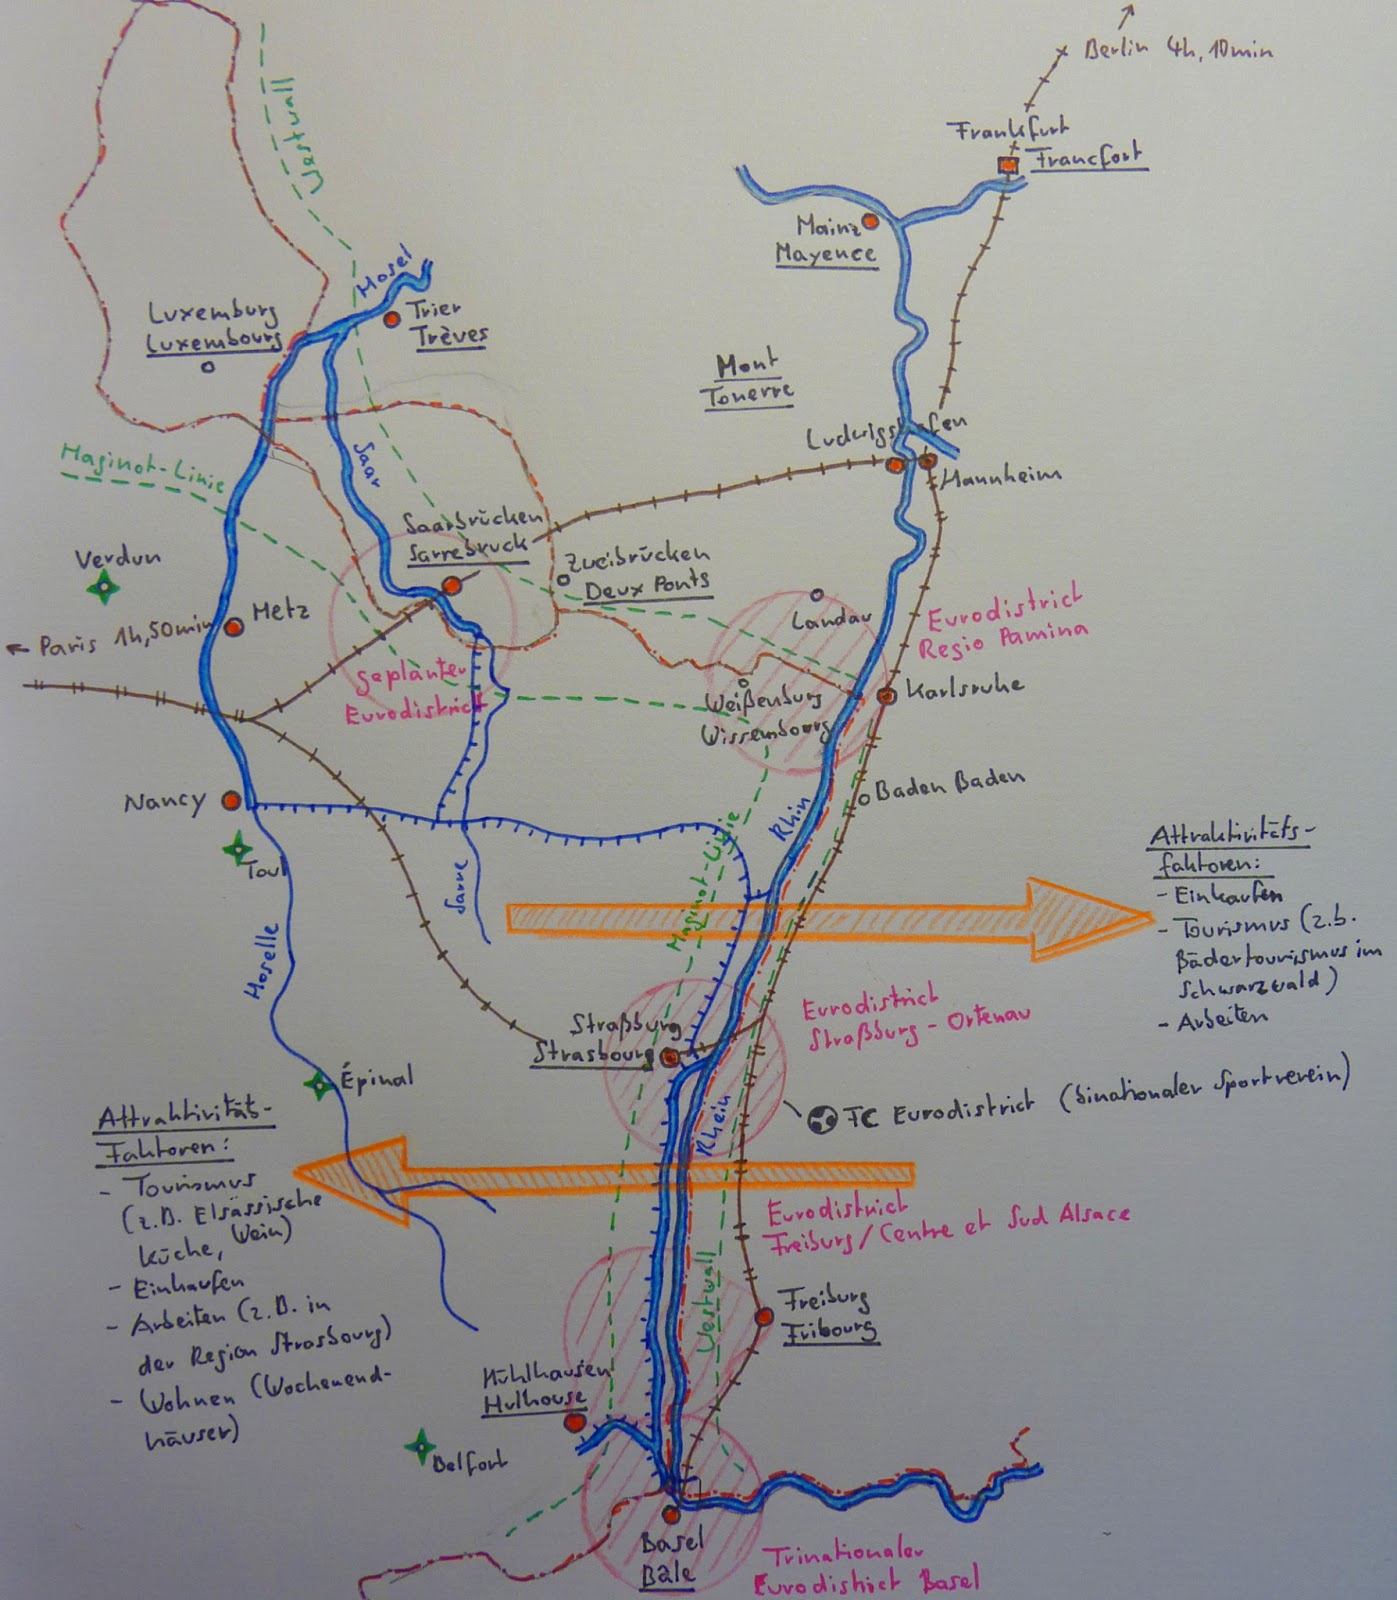 Berlin 4h, 10min
Frankfurt
Francfort
Westwall
Mainz
Mayence
Mosel
Luxemburg
Luxembourg
Trier
Trèves
Mont
Tonerre
Ludwigshafen
Mannheim
Maginot-Linie
Saar
Saarbrücken
Sarrebruck
Zweibrücken
Deux Ponts
Verdun
Metz
← Paris 1h,50min
Landau
Eurodistrict
Regio Pamina
geplanter
Eurodistrict
Weißenburg
Wissembourg
Karlsruhe
Nancy
Baden Baden
Rhin
Toul
Maginot-Linie
Sarre
Attraktivitäts-
faktoren:
- Einkaufen
- Tourismus (z.b.
Bädertourismus im
Schwarzwald)
- Arbeiten
Moselle
Eurodistrict
Straßburg - Ortenau
Straßburg
Strasbourg
Épinal
Rhein
FC Eurodistrict (binationaler Sportverein)
Attraktivität-
Faktoren:
- Tourismus
(z.B. Elsässische
Küche, Wein)
- Einkaufen
- Arbeiten (z.B. in
der Region Strasbourg)
- Wohnen (Wochenend-
häuser)
Eurodistrict
Freiburg/Centre et Sud Alsace
Westwall
Freiburg
Fribourg
Mühlhausen
Mulhouse
Belfort
Basel
Bâle
Trinationaler
Eurodistrict Basel